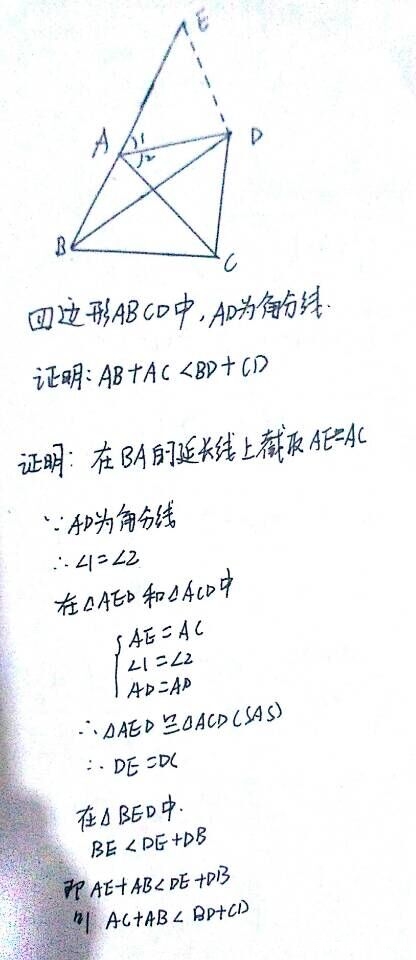 E
A 1 D
2
B
C
四边形ABCD中,AD为角分线.
证明:AB+AC<BD+CD
证明:在BA的延长线上截取AE=AC
∵AD为角分线
∴∠1=∠2
在△AED和△ACD中
AE=AC
∠1=∠2
AD=AD
∴△AED≌△ACD(SAS)
∴DE=DC
在△BED中.
BE<DE+DB
即AE+AB<DE+DB
则 AC+AB<BD+CD